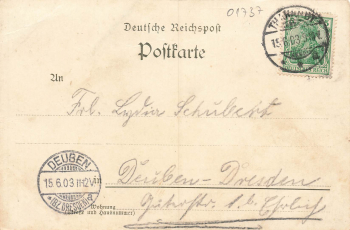 01737
Deutsche Reichspost
Postkarte
THARANDT
15.6.03
An
Frl. Lydia Schubert
DEUBEN
15.6.03 11-12V
in
Deuben-Dresden
Wohnung
(Straße und Hausnummer)
b. Ehrlich